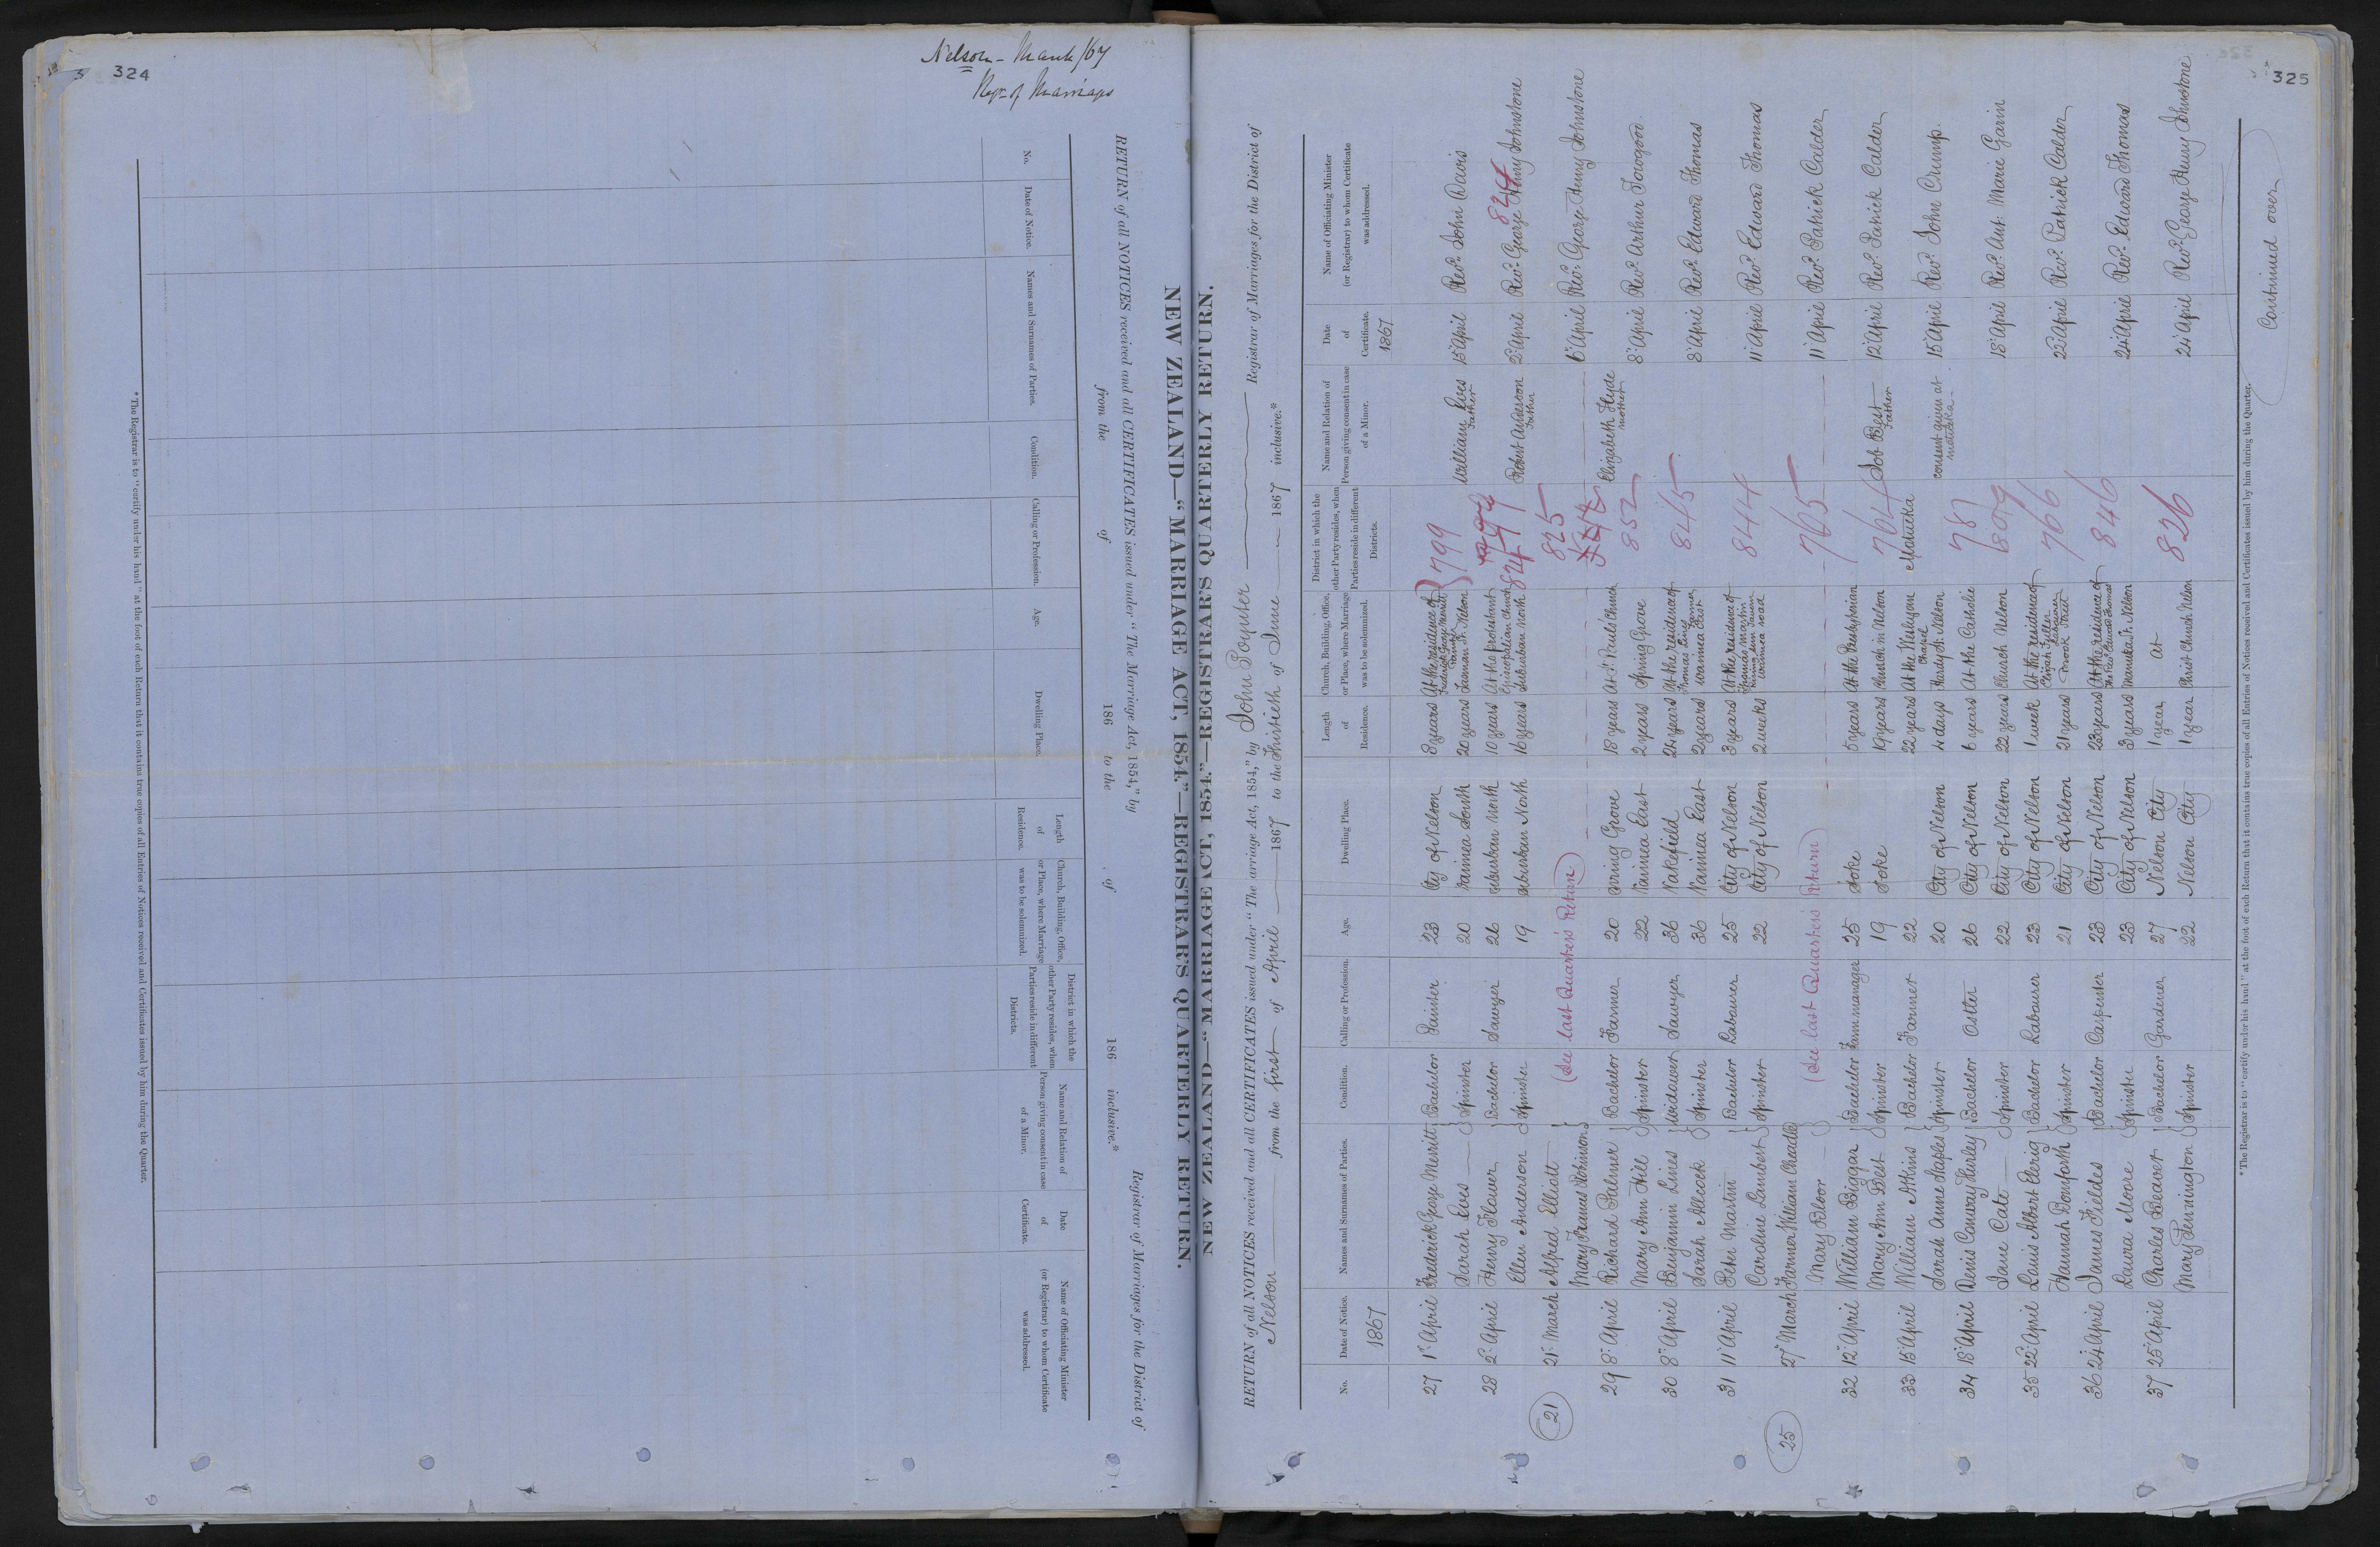 324
Nelson - March/67
Regr. of Marriages
NEW ZEALAND—"MARRIAGE ACT, 1854."—REGISTRAR'S QUARTERLY RETURN.
RETURN of all NOTICES received and all CERTIFICATES issued under "The Marriage Act, 1854," by Registrar of Marriages for the District of
from the of 186 to the of 186 inclusive.*
No. Date of Notice. Names and Surnames of Parties. Condition. Calling or Profession. Age. Dwelling Place. Length of Residence. Church, Building, Office, or Place, where Marriage was to be solemnized. District in which the other Party resides, when Parties reside in different Districts. Name and Relation of Person giving consent in case of a Minor. Date of Certificate. Name of Officiating Minister (or Registrar) to whom Certificate was addressed.
* The Registrar is to "certify under his hand" at the foot of each Return that it contains true copies of all Entries of Notices received and Certificates issued by him during the Quarter.
325
NEW ZEALAND—"MARRIAGE ACT, 1854."—REGISTRAR'S QUARTERLY RETURN.
RETURN of all NOTICES received and all CERTIFICATES issued under "The Marriage Act, 1854," by John Poynter Registrar of Marriages for the District of
Nelson from the first of April 1867 to the Thirtieth of June 1867 inclusive.*
No. Date of Notice. Names and Surnames of Parties. Condition. Calling or Profession. Age. Dwelling Place. Length of Residence. Church, Building, Office, or Place, where Marriage was to be solemnized. District in which the other Party resides, when Parties reside in different Districts. Name and Relation of Person giving consent in case of a Minor. Date of Certificate. Name of Officiating Minister (or Registrar) to whom Certificate was addressed.
1867 1867
27 1st April Frederick George Merritt Bachelor Painter 23 City of Nelson 8 years At the residence of Frederick George Merritt Painter 799
Sarah Ives Spinster 20 Waimea South 20 years Tasman St. Nelson William Ives Father 15 April Revd. John Davis
28 2d April Henry Flower Bachelor Sawyer 26 Suburban North 10 years At the protestant Episcopalian Church 824
Ellen Anderson Spinster 19 Suburban North 16 years Suburban North 824 Robert Anderson Father 2d April Revd. George Henry Johnstone
21 21st March Alfred Elliott (See last Quarter's Return) 825
Mary Frances Robinson 6 April Revd. George Henry Johnstone
29 8 April Richard Palmer Bachelor Farmer 20 Spring Grove 18 years At St. Paul's Church 852 Elizabeth Hyde mother
Mary Ann Hill Spinster 22 Waimea East 2 years Spring Grove 8 April Revd. Arthur Towgood.
30 8 April Benjamin Lines Widower Sawyer 36 Wakefield 24 years At the residence of Thomas Lines Farmer 845
Sarah Allcock Spinster 36 Waimea East 2 years Waimea East 8 April Revd. Edward Thomas
31 11 April John Martin Bachelor Labourer 25 City of Nelson 3 years At the residence of Thomas Martin 844
Caroline Lambert Spinster 22 City of Nelson 2 weeks Waimea road 11 April Revd. Edward Thomas
25 27 March Farmer William Cheadle (See last Quarter's Return) 765
Mary Bloor 11 April Revd. Patrick Calder
32 12 April William Biggar Bachelor Farm manager 25 Stoke 5 years At the Presbyterian 764
Mary Ann Best Spinster 19 Stoke 19 years Church in Nelson Job Best Father 12 April Revd. Patrick Calder
33 15 April William Atkins Bachelor Farmer 22 22 years At the Wesleyan Chapel Motueka
Sarah Anne Staples Spinster 20 City of Nelson 4 days Hardy St. Nelson 781 consent given at Motueka 15 April Revd. John Crump.
34 18 April Denis Conway Hurley Bachelor Ostler 26 City of Nelson 6 years At the Catholic 809
Jane Cate Spinster 22 City of Nelson 22 years Church Nelson 18 April Revd. Ant. Marie Garin
35 22 April Louis Albert Elerig Bachelor Labourer 23 City of Nelson 1 week At the residence of Elijah Fuller Labourer 766
Hannah Bomforth Spinster 21 City of Nelson 21 years Brook Street 22 April Revd. Patrick Calder
36 24 April James Fieldes Bachelor Carpenter 23 City of Nelson 23 years At the residence of the Revd. Edward Thomas 846
Laura Moore Spinster 23 City of Nelson 3 years Manuka St. Nelson 24 April Revd. Edward Thomas
37 25 April Charles Beaver Bachelor Gardener 27 Nelson City 1 year At 826
Mary Pennington Spinster 22 Nelson City 1 year Christ Church Nelson 24 April Revd. George Henry Johnstone
Continued over
* The Registrar is to "certify under his hand" at the foot of each Return that it contains true copies of all Entries of Notices received and Certificates issued by him during the Quarter.